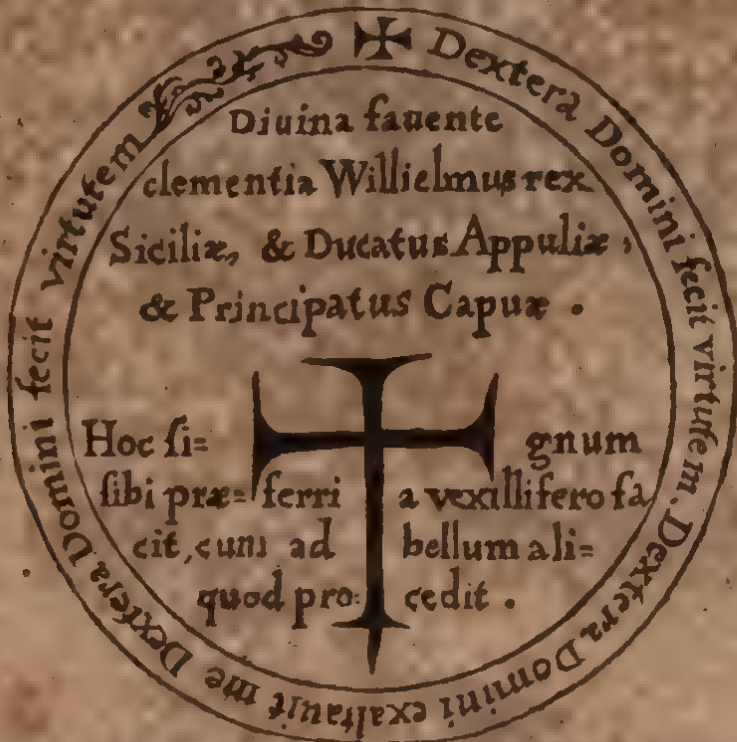 ✠ Dextera Domini fecit virtutem. Dextera Domini exaltauit me Dextera Domini fecit virtutem
Diuina fauente
clementia Willielmus rex
Siciliæ, & Ducatus Appuliæ,
& Principatus Capuæ.
Hoc si= gnum
sibi præ= ferri a vexillifero fa
cit, cum ad bellum ali=
quod pro= cedit.